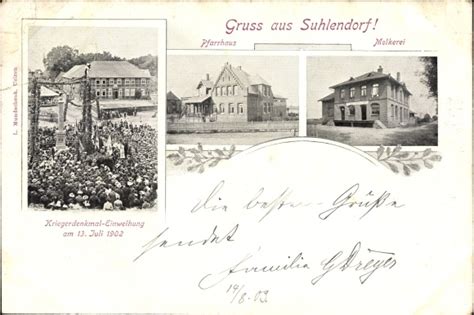 Gruss aus Suhlendorf!
Pfarrhaus
Molkerei
Kriegerdenkmal-Einweihung
am 13. Juli 1902
die besten Grüße
sendet
Familie G Dreyer
14/8.03.